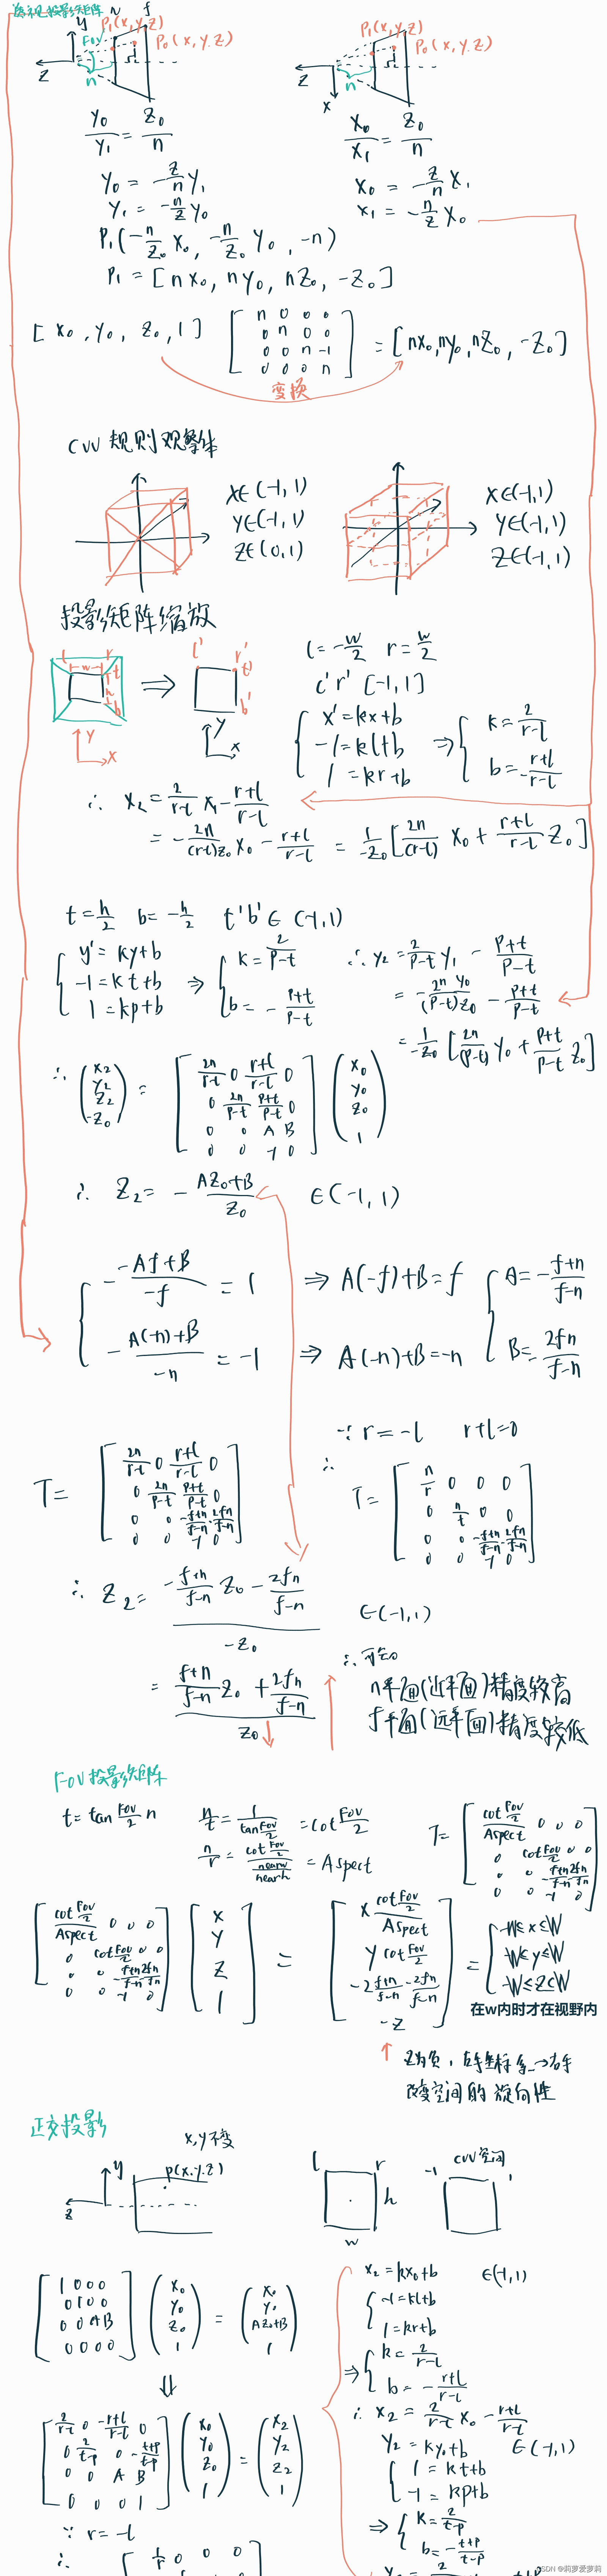 透视投影矩阵
y n P₁(x,y,z) f
FoV P₀(x,y,z)
z n
P₁(x,y,z)
P₀(x,y,z)
z x n
y₀/y₁ = z₀/n
x₀/x₁ = z₀/n
y₀ = -z/n y₁
x₀ = -z/n x₁
y₁ = -n/z y₀
x₁ = -n/z x₀
P₁(-n/z₀ x₀, -n/z₀ y₀, -n)
P₁ = [nx₀, ny₀, nz₀, -z₀]
[x₀, y₀, z₀, 1] [n 0 0 0
0 n 0 0
0 0 n -1
0 0 0 n] = [nx₀, ny₀, nz₀, -z₀]
变换
CVV 规则观察体
x∈(-1,1)
y∈(-1,1)
z∈(0,1)
x∈(-1,1)
y∈(-1,1)
z∈(-1,1)
投影矩阵缩放
l w r t h b
l' r' t' b'
Y X
Y x
l = -w/2 r = w/2
l' r' [-1,1]
x' = kx+b
-1 = kl+b
1 = kr+b
⇒ k = 2/(r-l)
b = -(r+l)/(r-l)
∴ x₂ = 2/(r-l) x₁ - (r+l)/(r-l)
= -2n/((r-l)z₀) x₀ - (r+l)/(r-l) = 1/-z₀ [2n/(r-l) x₀ + (r+l)/(r-l) z₀]
t = h/2 b = -h/2 t'b' ∈ (-1,1)
y' = ky+b
-1 = kt+b
1 = kp+b
⇒ k = 2/(p-t)
b = -(p+t)/(p-t)
∴ y₂ = 2/(p-t) y₁ - (p+t)/(p-t)
= -2n y₀/((p-t)z₀) - (p+t)/(p-t)
= 1/-z₀ [2n/(p-t) y₀ + (p+t)/(p-t) z₀]
∴ (x₂ y₂ z₂ -z₀) = [2n/(r-l) 0 (r+l)/(r-l) 0
0 2n/(p-t) (p+t)/(p-t) 0
0 0 A B
0 0 -1 0] (x₀ y₀ z₀ 1)
∴ z₂ = -(Az₀+B)/z₀ ∈(-1,1)
-(-Af+B)/-f = 1 ⇒ A(-f)+B = f
-(A(-n)+B)/-n = -1 ⇒ A(-n)+B = -n
A = -(f+n)/(f-n)
B = -2fn/(f-n)
T = [2n/(r-l) 0 (r+l)/(r-l) 0
0 2n/(p-t) (p+t)/(p-t) 0
0 0 -(f+n)/(f-n) -2fn/(f-n)
0 0 -1 0]
∵ r = -l r+l=0
∴
T = [n/r 0 0 0
0 n/t 0 0
0 0 -(f+n)/(f-n) -2fn/(f-n)
0 0 -1 0]
∴ z₂ = (-(f+n)/(f-n) z₀ - 2fn/(f-n))/-z₀ ∈(-1,1)
= ((f+n)/(f-n) z₀ + 2fn/(f-n))/z₀
n平面(近平面)精度较高
f平面(远平面)精度较低
FoV 投影矩阵
t = tan FoV/2 n
n/t = 1/tan FoV/2 = cot FoV/2
n/r = cot FoV/2 / (nearw/nearh) = Aspect
T = [cot FoV/2 / Aspect 0 0 0
0 cot FoV/2 0 0
0 0 -(f+n)/(f-n) -2fn/(f-n)
0 0 -1 0]
[cot FoV/2 / Aspect 0 0 0
0 cot FoV/2 0 0
0 0 -(f+n)/(f-n) -2fn/(f-n)
0 0 -1 0] [x y z 1] = [x cot FoV/2 / Aspect
y cot FoV/2
-z (f+n)/(f-n) - 2fn/(f-n)
-z] = {-W≤x≤W
-W≤y≤W
-W≤z≤W
在w内时才在视野内
改变空间的旋向性
正交投影
x,y不变
y p(x,y,z) z
l r h w
-1 CVV空间 1
[1 0 0 0
0 1 0 0
0 0 A B
0 0 0 0] (x₀ y₀ z₀ 1) = (x₀ y₀ Az₀+B 1)
⇓
[2/(r-l) 0 -(r+l)/(r-l) 0
0 2/(t-p) 0 -(t+p)/(t-p)
0 0 A B
0 0 0 1] (x₀ y₀ z₀ 1) = (x₂ y₂ z₂ 1)
∵ r = -l
∴ [1/r 0 0 0
x₂ = kx₀+b ∈(-1,1)
-1 = kl+b
1 = kr+b
⇒ k = 2/(r-l)
b = -(r+l)/(r-l)
∴ x₂ = 2/(r-l) x₀ - (r+l)/(r-l)
y₂ = ky₀+b ∈(-1,1)
1 = kt+b
-1 = kp+b
⇒ k = 2/(t-p)
b = -(t+p)/(t-p)
CSDN @莉萝爱萝莉